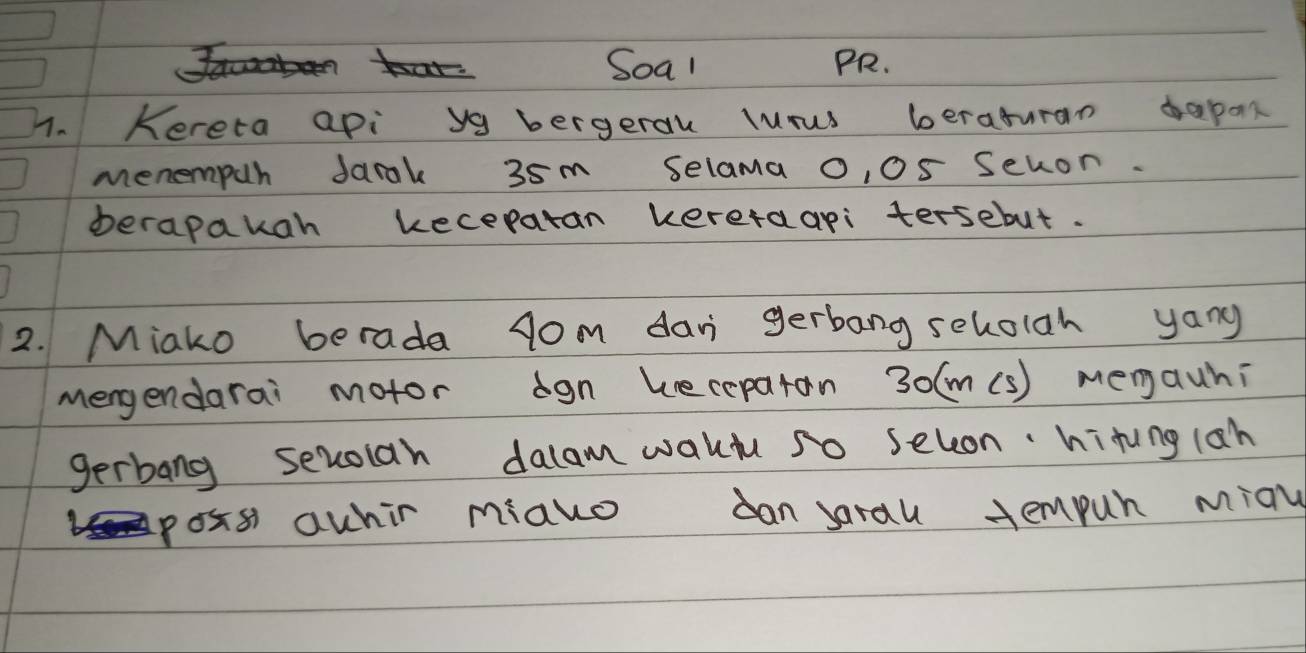 Soal PR.
1. Kereta api yg bergerak lurus beraturan dapat
menempuh Jarak 35m selama 0,05 sekon.
berapakah kecepatan kereta api tersebut.
2. Miako berada 40m dari gerbang sekolah yang
mengendarai motor dgn kecepatan 30(m/s) menjauhi
gerbang sekolah dalam waktu 50 sekon. hitunglah
posisi akhir miako dan jarak tempuh miak